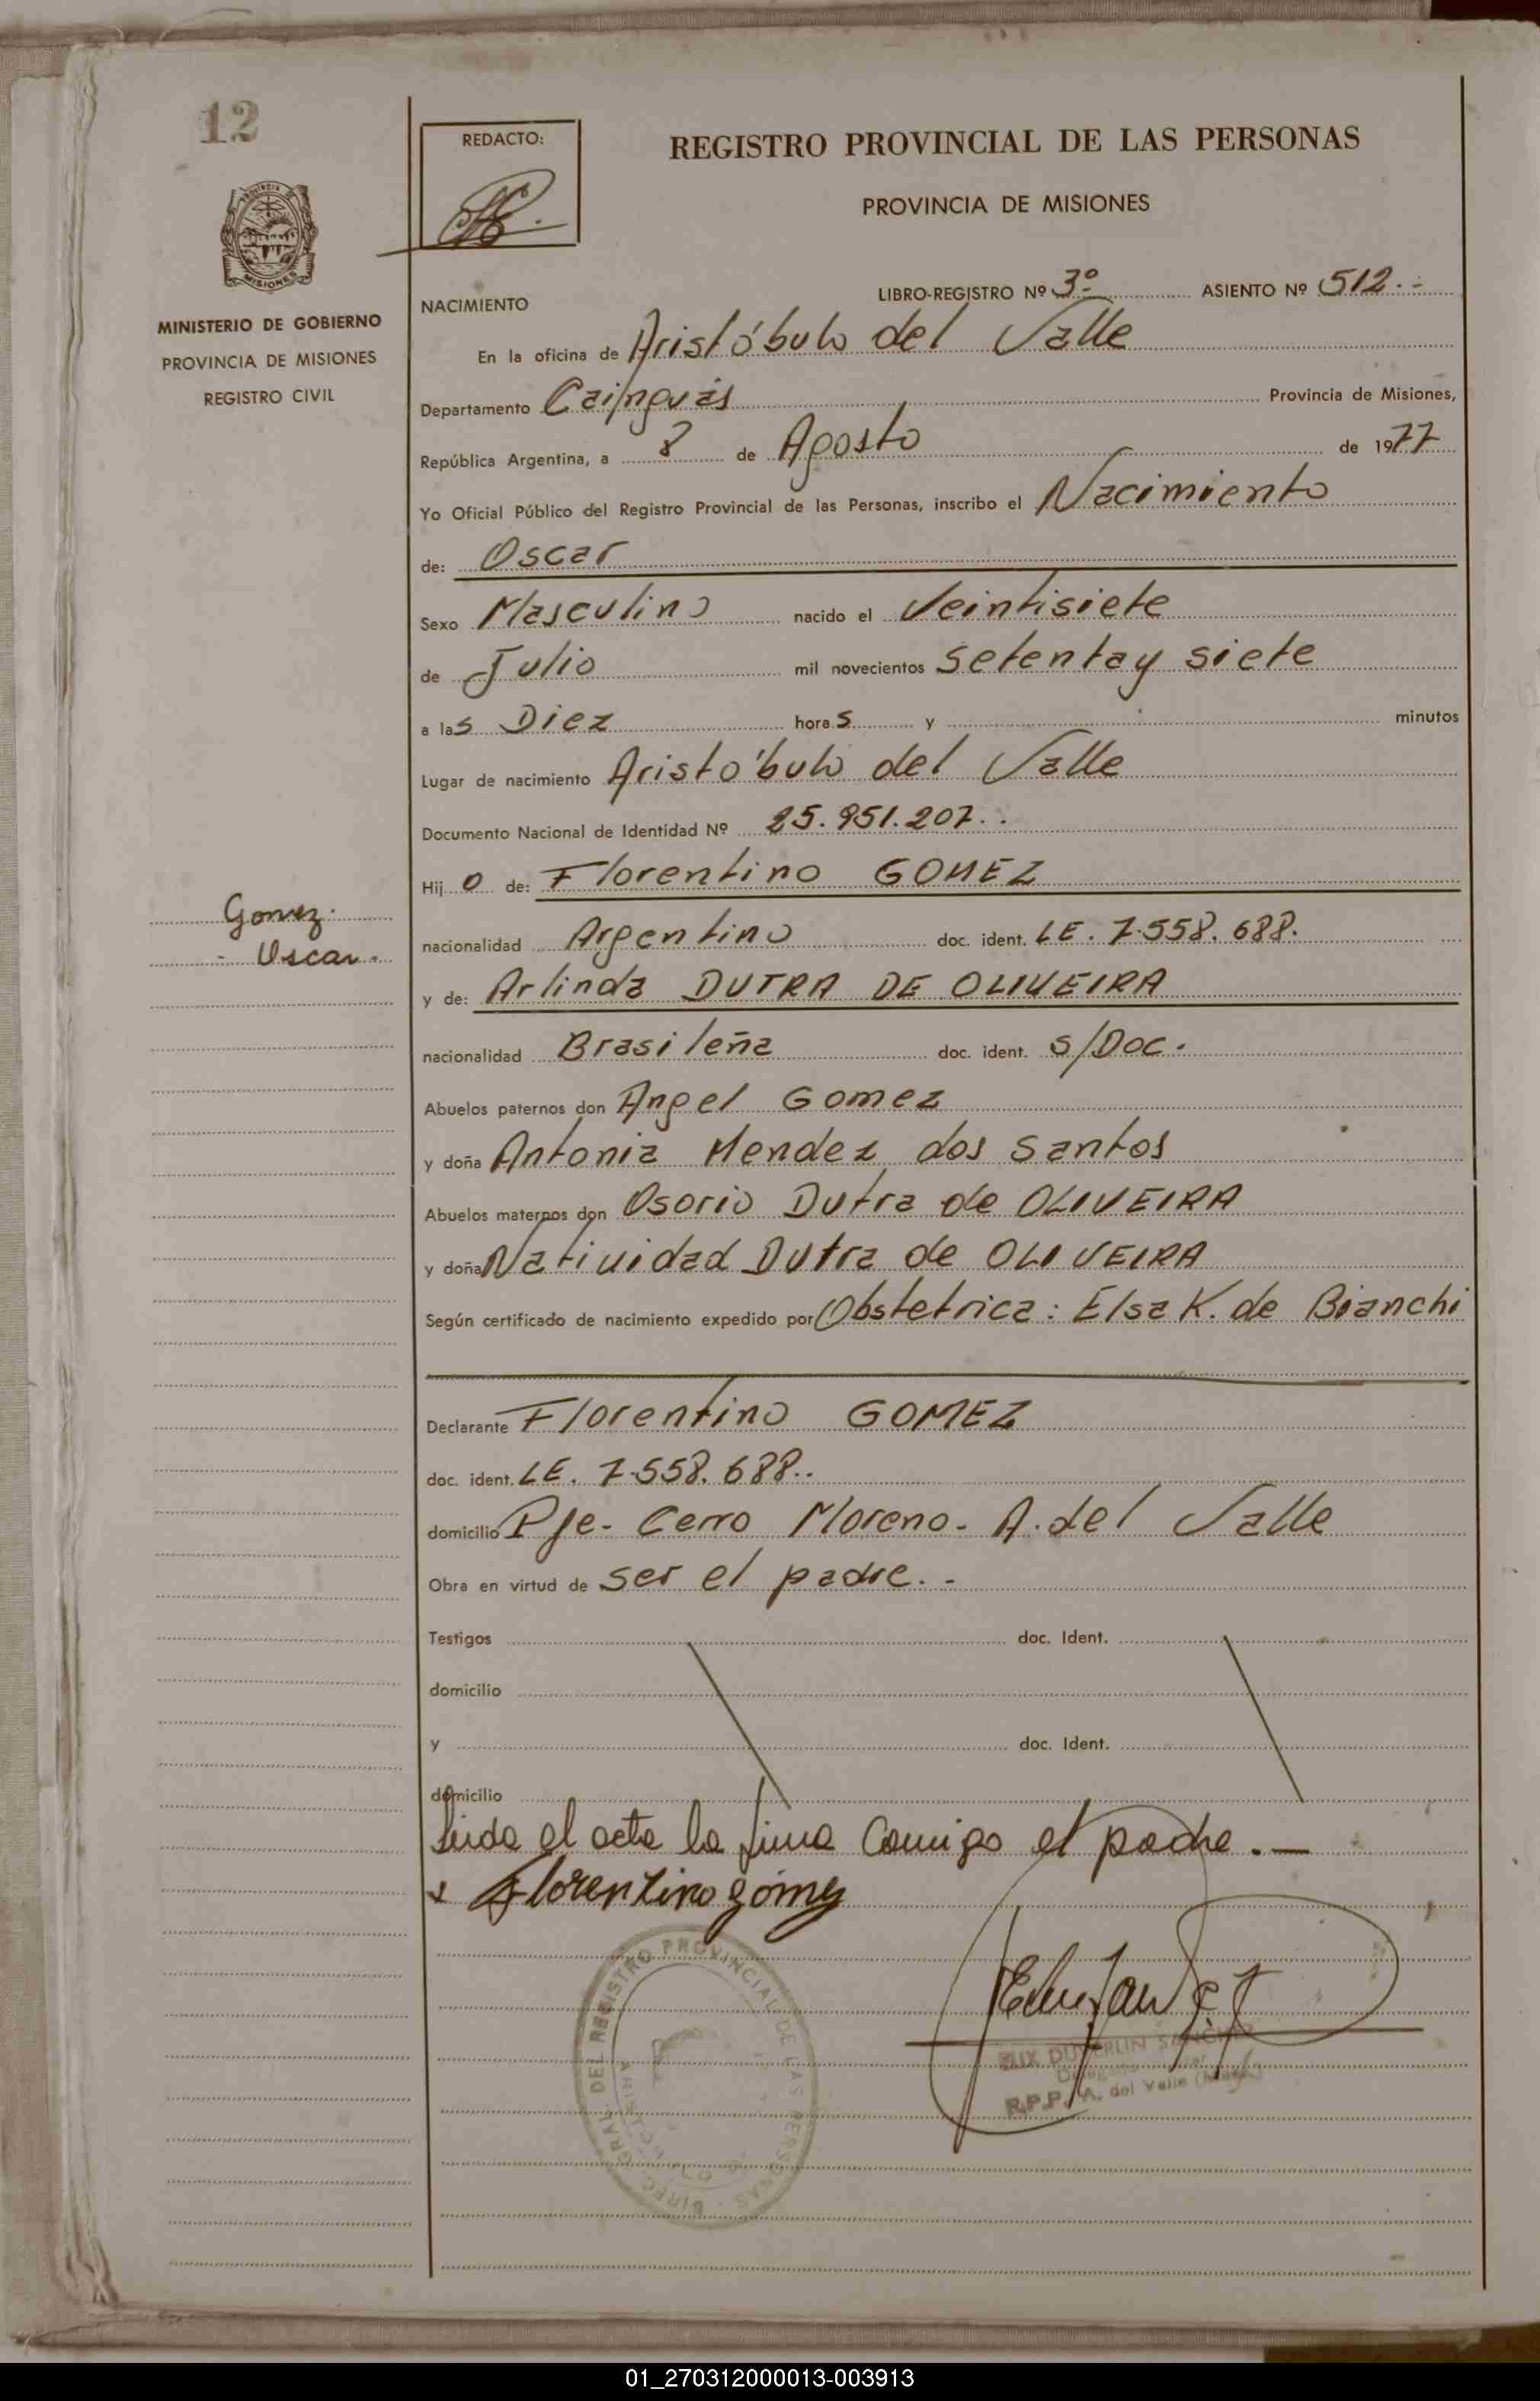 12
REDACTO:
REGISTRO PROVINCIAL DE LAS PERSONAS
PROVINCIA DE MISIONES
MISIONES
MINISTERIO DE GOBIERNO
PROVINCIA DE MISIONES
REGISTRO CIVIL
LIBRO-REGISTRO Nº 3º ASIENTO Nº 512.-
NACIMIENTO
En la oficina de Aristóbulo del Valle
Departamento Cainguás Provincia de Misiones,
República Argentina, a 8 de Agosto de 1977
Yo Oficial Público del Registro Provincial de las Personas, inscribo el Nacimiento
de: Oscar
Sexo Masculino nacido el Veintisiete
de Julio mil novecientos setenta y siete
a las Diez horas y minutos
Lugar de nacimiento Aristóbulo del Valle
Documento Nacional de Identidad Nº 25.951.207..
Hijo de: Florentino GOMEZ
Gomez.
- Oscar.
nacionalidad Argentino doc. ident. LE. 7.558.688.
y de: Arlinda DUTRA DE OLIVEIRA
nacionalidad Brasileña doc. ident. S/Doc.
Abuelos paternos don Angel Gomez
y doña Antonia Mendez dos Santos
Abuelos maternos don Osorio Dutra de OLIVEIRA
y doña Natividad Dutra de OLIVEIRA
Según certificado de nacimiento expedido por Obstetrica: Elsa K. de Bianchi
Declarante Florentino GOMEZ
doc. ident. LE. 7.558.688..
domicilio Pje- Cerro Moreno- A. del Valle
Obra en virtud de ser el padre.-
Testigos doc. Ident.
domicilio
y doc. Ident.
domicilio
Leida el acta la firma Conmigo el padre.—
x Florentino gómez
DIREC. GRAL. DEL REGISTRO PROVINCIAL DE LAS PERSONAS
DUVERLIN SANCHEZ
R.P.P. A. del Valle
01_270312000013-003913